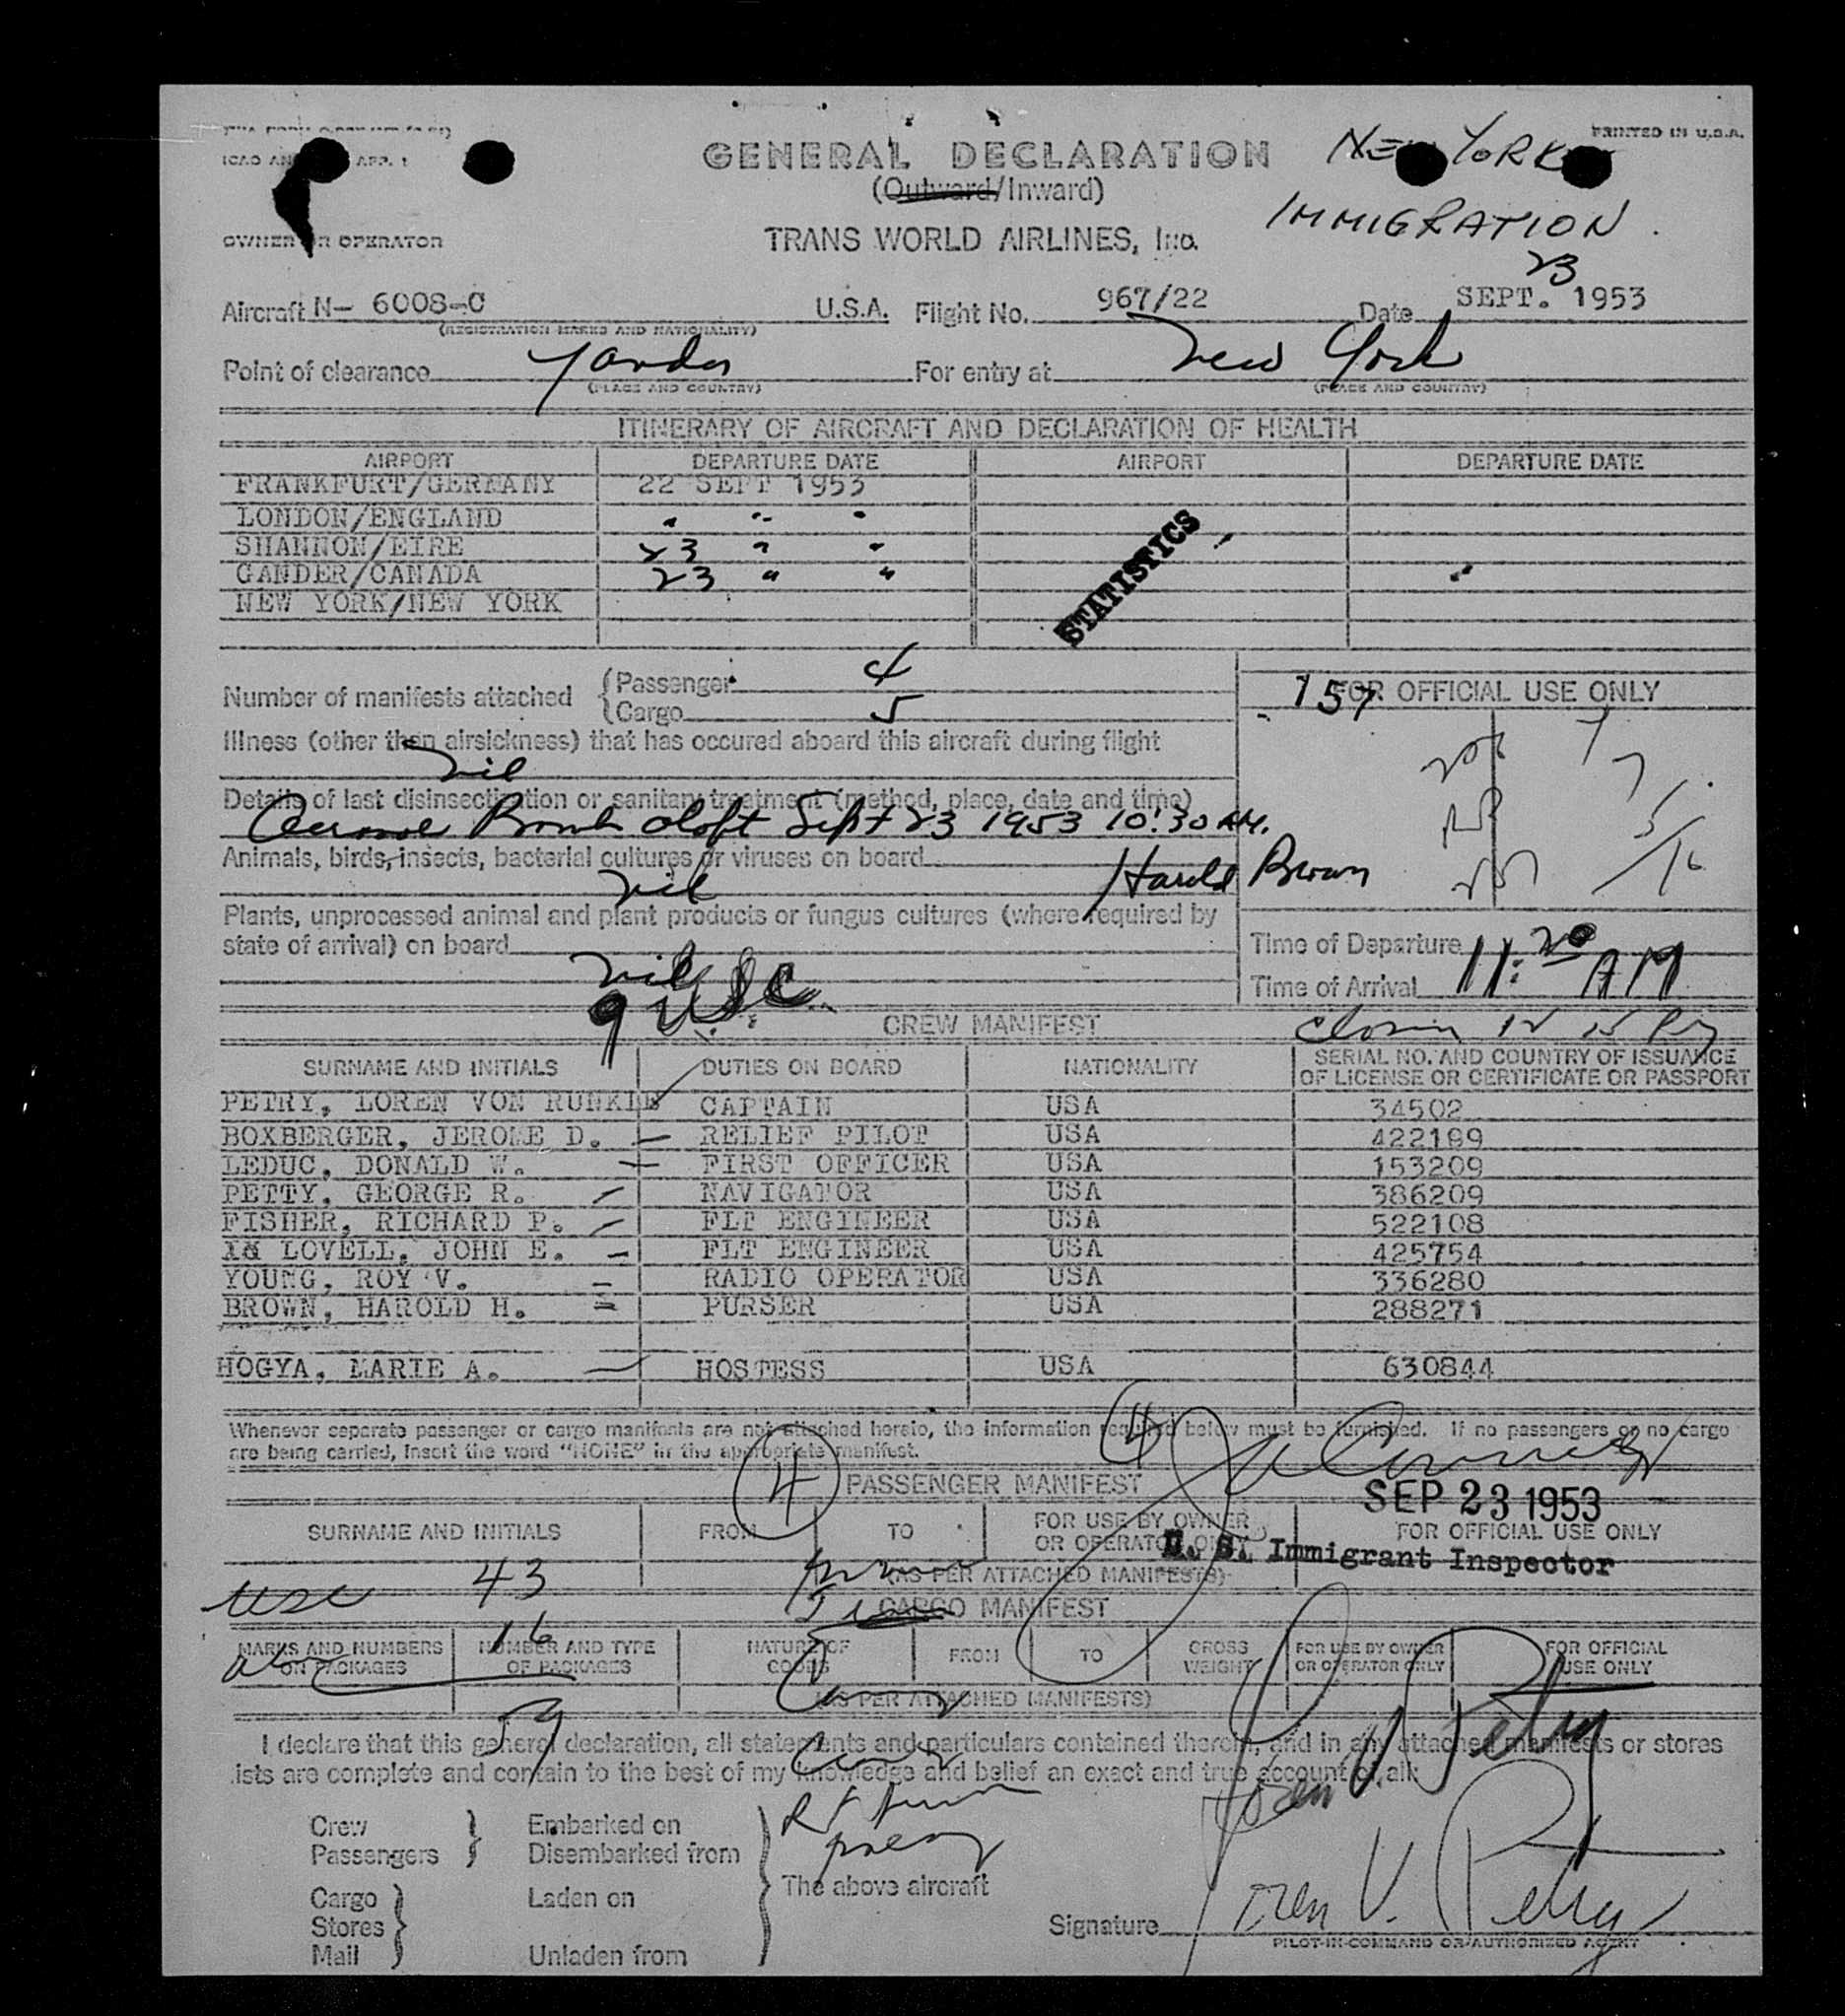 PRINTED IN U.S.A.
ICAO AN APP. 1
GENERAL DECLARATION
NEW YORK
(Outward/Inward)
IMMIGRATION
OWNER OR OPERATOR
TRANS WORLD AIRLINES, Inc.
23
Aircraft N- 6008-C U.S.A. Flight No. 967/22 Date SEPT. 1953
(REGISTRATION MARKS AND NATIONALITY)
Point of clearance Gander For entry at New York
(PLACE AND COUNTRY) (PLACE AND COUNTRY)
ITINERARY OF AIRCRAFT AND DECLARATION OF HEALTH
AIRPORT DEPARTURE DATE AIRPORT DEPARTURE DATE
FRANKFURT/GERMANY 22 SEPT 1953
LONDON/ENGLAND " " "
SHANNON/EIRE 23 " "
GANDER/CANADA 23 " "
NEW YORK/NEW YORK
STATISTICS
Number of manifests attached Passenger 4
Cargo 5
157 FOR OFFICIAL USE ONLY
Illness (other than airsickness) that has occured aboard this aircraft during flight
nil
Details of last disinsectization or sanitary treatment (method, place, date and time)
Aerosol Bomb aloft Sept 23 1953 10:30 AM.
Animals, birds, insects, bacterial cultures or viruses on board
nil Harold Brown
Plants, unprocessed animal and plant products or fungus cultures (where required by
state of arrival) on board
nil
Time of Departure
Time of Arrival 11:20 AM
9 USC
CREW MANIFEST
SURNAME AND INITIALS DUTIES ON BOARD NATIONALITY SERIAL NO. AND COUNTRY OF ISSUANCE
OF LICENSE OR CERTIFICATE OR PASSPORT
PETRY, LOREN VON RUNKLE CAPTAIN USA 34502
BOXBERGER, JEROME D. RELIEF PILOT USA 422189
LEDUC, DONALD W. FIRST OFFICER USA 153209
PETTY, GEORGE R. NAVIGATOR USA 386209
FISHER, RICHARD P. FLT ENGINEER USA 522108
LOVELL, JOHN E. FLT ENGINEER USA 425754
YOUNG, ROY V. RADIO OPERATOR USA 336280
BROWN, HAROLD H. PURSER USA 288271
HOGYA, MARIE A. HOSTESS USA 630844
Whenever separate passenger or cargo manifests are not attached hereto, the information required below must be furnished. If no passengers or no cargo
are being carried, insert the word "NONE" in the appropriate manifest.
4
4 PASSENGER MANIFEST
SEP 23 1953
SURNAME AND INITIALS FROM TO FOR USE BY OWNER
OR OPERATOR ONLY FOR OFFICIAL USE ONLY
U. S. Immigrant Inspector
(AS PER ATTACHED MANIFESTS)
USC 43
CARGO MANIFEST
16
MARKS AND NUMBERS
ON PACKAGES NUMBER AND TYPE
OF PACKAGES NATURE OF
GOODS FROM TO GROSS
WEIGHT FOR USE BY OWNER
OR OPERATOR ONLY FOR OFFICIAL
USE ONLY
(AS PER ATTACHED MANIFESTS)
59
I declare that this general declaration, all statements and particulars contained therein, and in any attached manifests or stores
lists are complete and contain to the best of my knowledge and belief an exact and true account of all:
Loren V. Petry
Crew Embarked on
Passengers Disembarked from
The above aircraft
Cargo Laden on
Stores
Mail Unladen from
Signature Loren V. Petry
PILOT-IN-COMMAND OR AUTHORIZED AGENT